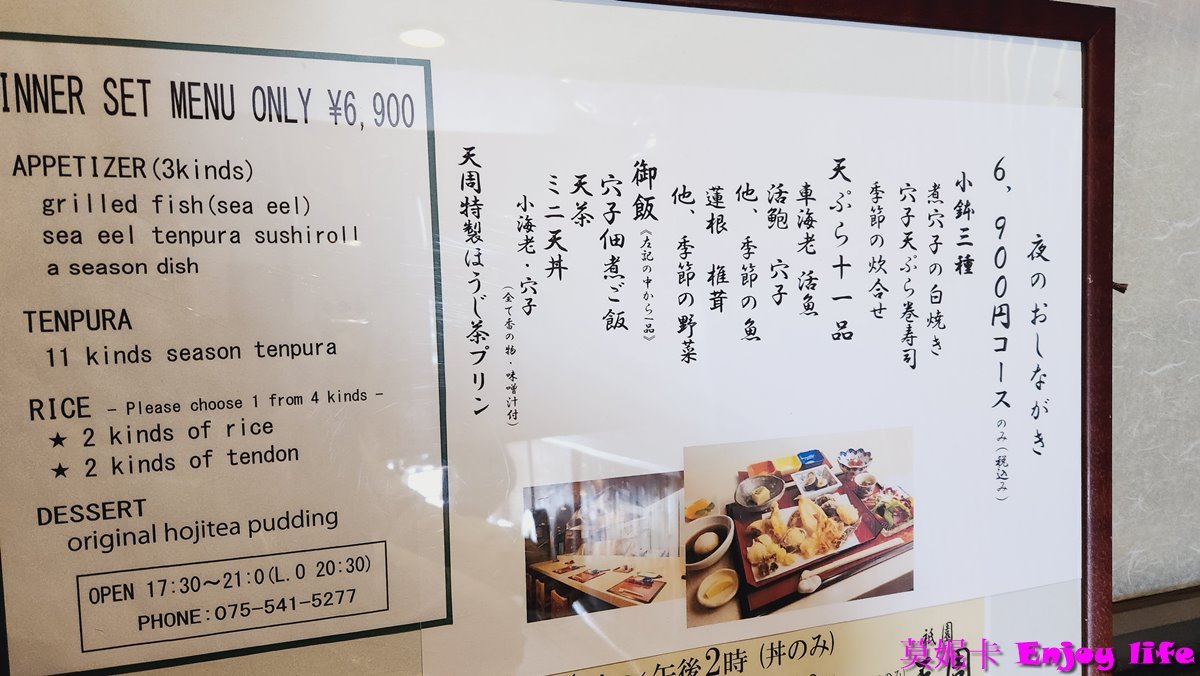 INNER SET MENU ONLY ¥6,900
APPETIZER(3kinds)
grilled fish(sea eel)
sea eel tenpura sushiroll
a season dish
TENPURA
11 kinds season tenpura
RICE - Please choose 1 from 4 kinds -
★ 2 kinds of rice
★ 2 kinds of tendon
DESSERT
original hojitea pudding
OPEN 17:30～21:0(L.O 20:30)
PHONE:075-541-5277
夜のおしながき
6,900円コースのみ(税込み)
小鉢三種
煮穴子の白焼き
穴子天ぷら巻寿司
季節の炊合せ
天ぷら十一品
車海老 活魚
活鮑 穴子
他、季節の魚
蓮根 椎茸
他、季節の野菜
御飯《左記の中から一品》
穴子佃煮ご飯
天茶
ミニ天丼
小海老・穴子
(全て香の物・味噌汁付)
天周特製ほうじ茶プリン
午後2時 (丼のみ)
祇園
莫妮卡 Enjoy life